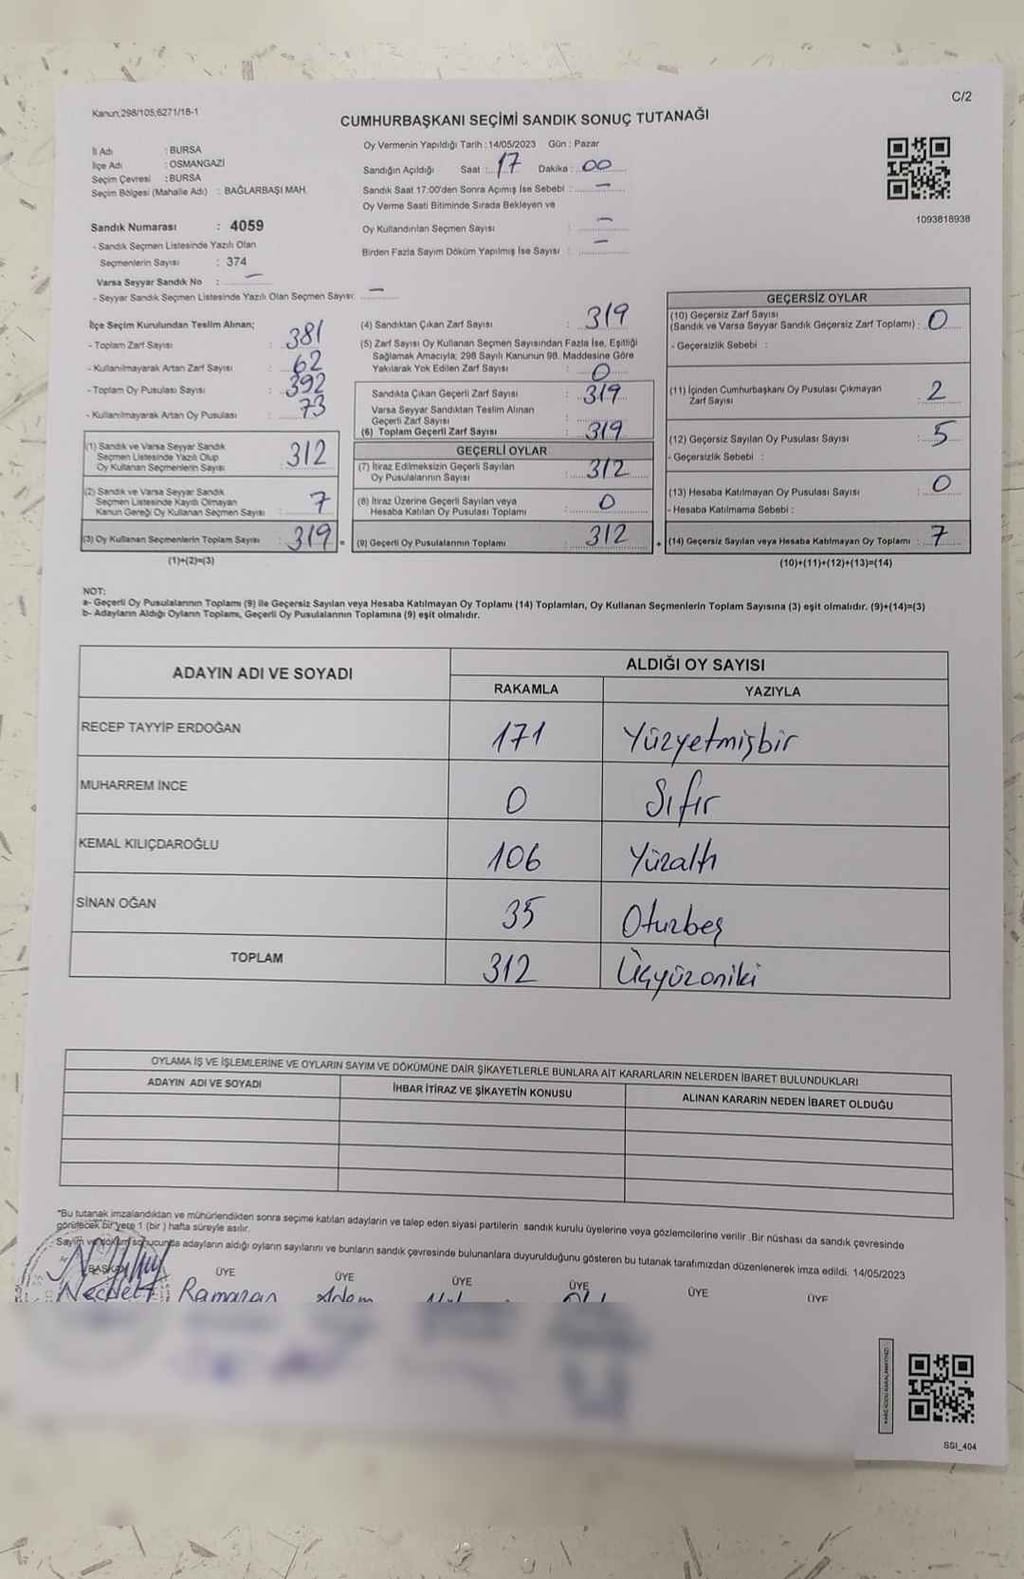 Kanun;298/105,6271/18-1
C/2
CUMHURBAŞKANI SEÇİMİ SANDIK SONUÇ TUTANAĞI
İl Adı : BURSA
İlçe Adı : OSMANGAZİ
Seçim Çevresi : BURSA
Seçim Bölgesi (Mahalle Adı) : BAĞLARBAŞI MAH.
Sandık Numarası : 4059
- Sandık Seçmen Listesinde Yazılı Olan
Seçmenlerin Sayısı : 374
Varsa Seyyar Sandık No : —
- Seyyar Sandık Seçmen Listesinde Yazılı Olan Seçmen Sayısı: —
Oy Vermenin Yapıldığı Tarih : 14/05/2023 Gün : Pazar
Sandığın Açıldığı Saat : 17 Dakika : 00
Sandık Saat 17:00'den Sonra Açımış İse Sebebi : —
Oy Verme Saati Bitiminde Sırada Bekleyen ve
Oy Kullandırılan Seçmen Sayısı : —
Birden Fazla Sayım Döküm Yapılmış İse Sayısı : —
1093818938
İlçe Seçim Kurulundan Teslim Alınan;
- Toplam Zarf Sayısı : 381
- Kullanılmayarak Artan Zarf Sayısı : 62
- Toplam Oy Pusulası Sayısı : 392
- Kullanılmayarak Artan Oy Pusulası : 73
(1) Sandık ve Varsa Seyyar Sandık
Seçmen Listesinde Yazılı Olup
Oy Kullanan Seçmenlerin Sayısı : 312
(2) Sandık ve Varsa Seyyar Sandık
Seçmen Listesinde Kayıtlı Olmayan
Kanun Gereği Oy Kullanan Seçmen Sayısı : 7
(3) Oy Kullanan Seçmenlerin Toplam Sayısı : 319
(1)+(2)=(3)
(4) Sandıktan Çıkan Zarf Sayısı : 319
(5) Zarf Sayısı Oy Kullanan Seçmen Sayısından Fazla İse, Eşitliği
Sağlamak Amacıyla; 298 Sayılı Kanunun 98. Maddesine Göre
Yakılarak Yok Edilen Zarf Sayısı : 0
Sandıkta Çıkan Geçerli Zarf Sayısı : 319
Varsa Seyyar Sandıktan Teslim Alınan
Geçerli Zarf Sayısı :
(6) Toplam Geçerli Zarf Sayısı : 319
GEÇERLİ OYLAR
(7) İtiraz Edilmeksizin Geçerli Sayılan
Oy Pusulalarının Sayısı : 312
(8) İtiraz Üzerine Geçerli Sayılan veya
Hesaba Katılan Oy Pusulası Toplamı : 0
= (9) Geçerli Oy Pusulalarının Toplamı : 312
GEÇERSİZ OYLAR
(10) Geçersiz Zarf Sayısı
(Sandık ve Varsa Seyyar Sandık Geçersiz Zarf Toplamı) : 0
- Geçersizlik Sebebi :
(11) İçinden Cumhurbaşkanı Oy Pusulası Çıkmayan
Zarf Sayısı : 2
(12) Geçersiz Sayılan Oy Pusulası Sayısı : 5
- Geçersizlik Sebebi :
(13) Hesaba Katılmayan Oy Pusulası Sayısı : 0
- Hesaba Katılmama Sebebi :
+ (14) Geçersiz Sayılan veya Hesaba Katılmayan Oy Toplamı : 7
(10)+(11)+(12)+(13)=(14)
NOT:
a- Geçerli Oy Pusulalarının Toplamı (9) ile Geçersiz Sayılan veya Hesaba Katılmayan Oy Toplamı (14) Toplamları, Oy Kullanan Seçmenlerin Toplam Sayısına (3) eşit olmalıdır. (9)+(14)=(3)
b- Adayların Aldığı Oyların Toplamı, Geçerli Oy Pusulalarının Toplamına (9) eşit olmalıdır.
ADAYIN ADI VE SOYADI
ALDIĞI OY SAYISI
RAKAMLA YAZIYLA
RECEP TAYYİP ERDOĞAN 171 Yüzyetmişbir
MUHARREM İNCE 0 Sıfır
KEMAL KILIÇDAROĞLU 106 Yüzaltı
SİNAN OĞAN 35 Otuzbeş
TOPLAM 312 Üçyüzoniki
OYLAMA İŞ VE İŞLEMLERİNE VE OYLARIN SAYIM VE DÖKÜMÜNE DAİR ŞİKAYETLERLE BUNLARA AİT KARARLARIN NELERDEN İBARET BULUNDUKLARI
ADAYIN ADI VE SOYADI İHBAR İTİRAZ VE ŞİKAYETİN KONUSU ALINAN KARARIN NEDEN İBARET OLDUĞU
"Bu tutanak imzalandıktan ve mühürlendikten sonra seçime katılan adayların ve talep eden siyasi partilerin sandık kurulu üyelerine veya gözlemcilerine verilir. Bir nüshası da sandık çevresinde
görülecek bir yere 1 (bir) hafta süreyle asılır.
Sayım ve döküm sonucunda adayların aldığı oyların sayılarını ve bunların sandık çevresinde bulunanlara duyurulduğunu gösteren bu tutanak tarafımızdan düzenlenerek imza edildi. 14/05/2023
BAŞKAN ÜYE ÜYE ÜYE ÜYE ÜYE ÜYE
Ramazan
SGI_404